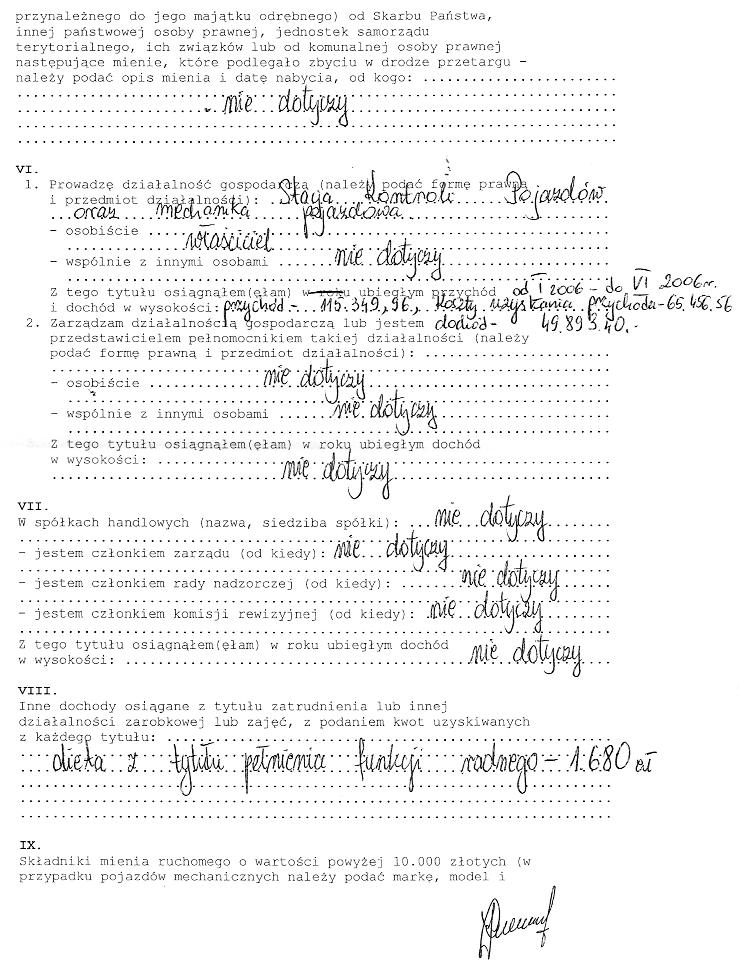 przynależnego do jego majątku odrębnego) od Skarbu Państwa,
innej państwowej osoby prawnej, jednostek samorządu
terytorialnego, ich związków lub od komunalnej osoby prawnej
następujące mienie, które podlegało zbyciu w drodze przetargu –
należy podać opis mienia i datę nabycia, od kogo: ........................
nie dotyczy
VI.
1. Prowadzę działalność gospodarczą (należy podać formę prawną
i przedmiot działalności): Stacja Kontroli Pojazdów
oraz mechanika pojazdowa
- osobiście ........................
właściciel
- wspólnie z innymi osobami ...... nie dotyczy
Z tego tytułu osiągnąłem(ęłam) w roku ubiegłym przychód od I 2006 – do VI 2006r.
i dochód w wysokości: przychód - 115.349,96, koszty uzyskania przychodu - 65.456.56
2. Zarządzam działalnością gospodarczą lub jestem dochód - 49.893.40.-
przedstawicielem pełnomocnikiem takiej działalności (należy
podać formę prawną i przedmiot działalności): ........................
- osobiście ............ nie dotyczy
- wspólnie z innymi osobami ...... nie dotyczy
Z tego tytułu osiągnąłem(ęłam) w roku ubiegłym dochód
w wysokości: ............ nie dotyczy
VII.
W spółkach handlowych (nazwa, siedziba spółki): ... nie dotyczy
- jestem członkiem zarządu (od kiedy): nie dotyczy
- jestem członkiem rady nadzorczej (od kiedy): ........ nie dotyczy
- jestem członkiem komisji rewizyjnej (od kiedy): nie dotyczy
Z tego tytułu osiągnąłem(ęłam) w roku ubiegłym dochód
w wysokości: ............ nie dotyczy
VIII.
Inne dochody osiągane z tytułu zatrudnienia lub innej
działalności zarobkowej lub zajęć, z podaniem kwot uzyskiwanych
z każdego tytułu: ........................
dieta z tytułu pełnienia funkcji radnego – 1.680 zł
IX.
Składniki mienia ruchomego o wartości powyżej 10.000 złotych (w
przypadku pojazdów mechanicznych należy podać markę, model i